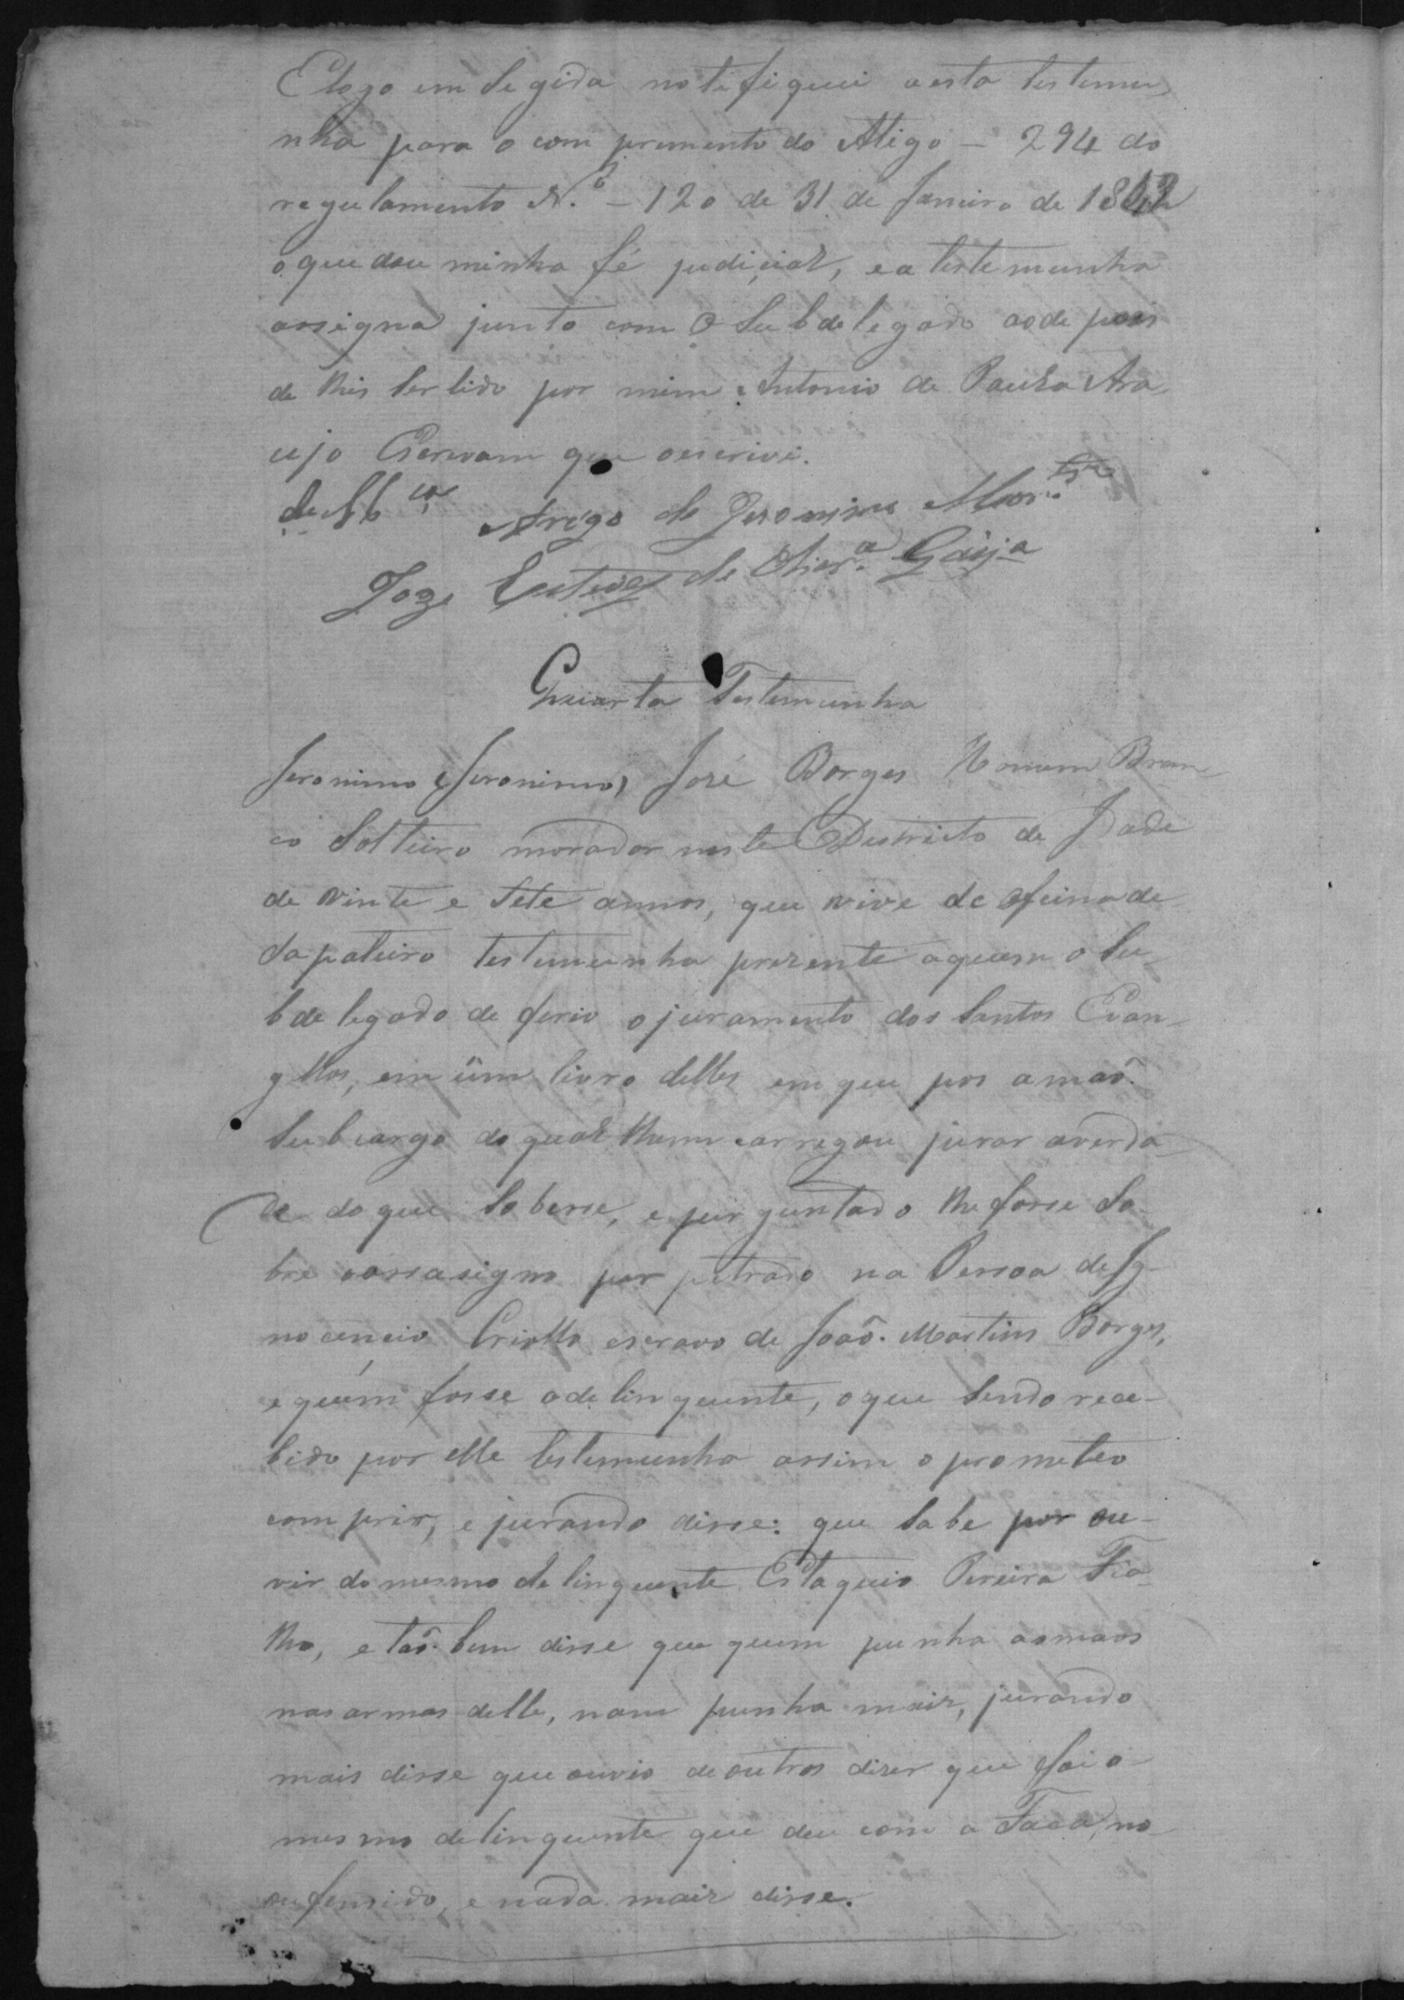 Elogo em Segida notifiquei aesta testemu
nha para o comprimento do Atigo - 294 do
regulamento N.º - 120 de 31 de Janeiro de 1842
oque dou minha fé judicial, e a testemunha
assigna junto com o Subdelegado aode pois
de lhis ser lido por mim Antonio de Paula Ara
ujo Escrivam que oescrivi.
Arigo de Jeronimo
Joze Esteves de Olivr.ª
Quarta Testemunha
Jeronimo (Jeronimo) José Borges Homem Bran-
co Solteiro morador neste Destricto de Idade
de vinte e Sete annos, que vive de oficina de
Sapateiro testemunha prezente aquem o Su-
bdelegado deferio o juramento dos Santos Evan-
gilhos, em üm livro delles em que pos amaõ.
Subcargo do qual lhemcarregou jurar averda-
de doque Soberse, e perguntado lhe fosse So-
bre oassasigno perpetrado na Persoa de Ig-
nocencio Criollo escravo de Joaõ. Martins Borges,
e quém fosse odelinquente, oque Sendo rece-
bido por elle testemunha assim o prometeo
comprir, e jurando disse: que Sabe por ou-
vir do mesmo delinquente Estaquio Pereira Fia-
lho, e taõ. bem disse que quem punha asmaos
nas armas delle, nam punha mais, jurando
mais disse que ouvio deoutros dizer que foi o
mesmo delinquente que deu com a Faca, no
oufensido, e nada mais disse.